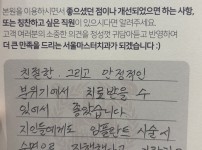 본원을 이용하시면서 좋으셨던 점이나 개선되었으면 하는 사항,
또는 칭찬하고 싶은 직원이 있으시다면 알려주세요.
고객 여러분의 소중한 의견을 정성껏 귀담아듣고 반영하여
더 큰 만족을 드리는 서울마스터치과가 되겠습니다 :)
친절한, 그리고 안정적인
분위기에서 치료받을 수
있어서 좋았습니다
지인들에게도 임플란트 시술시